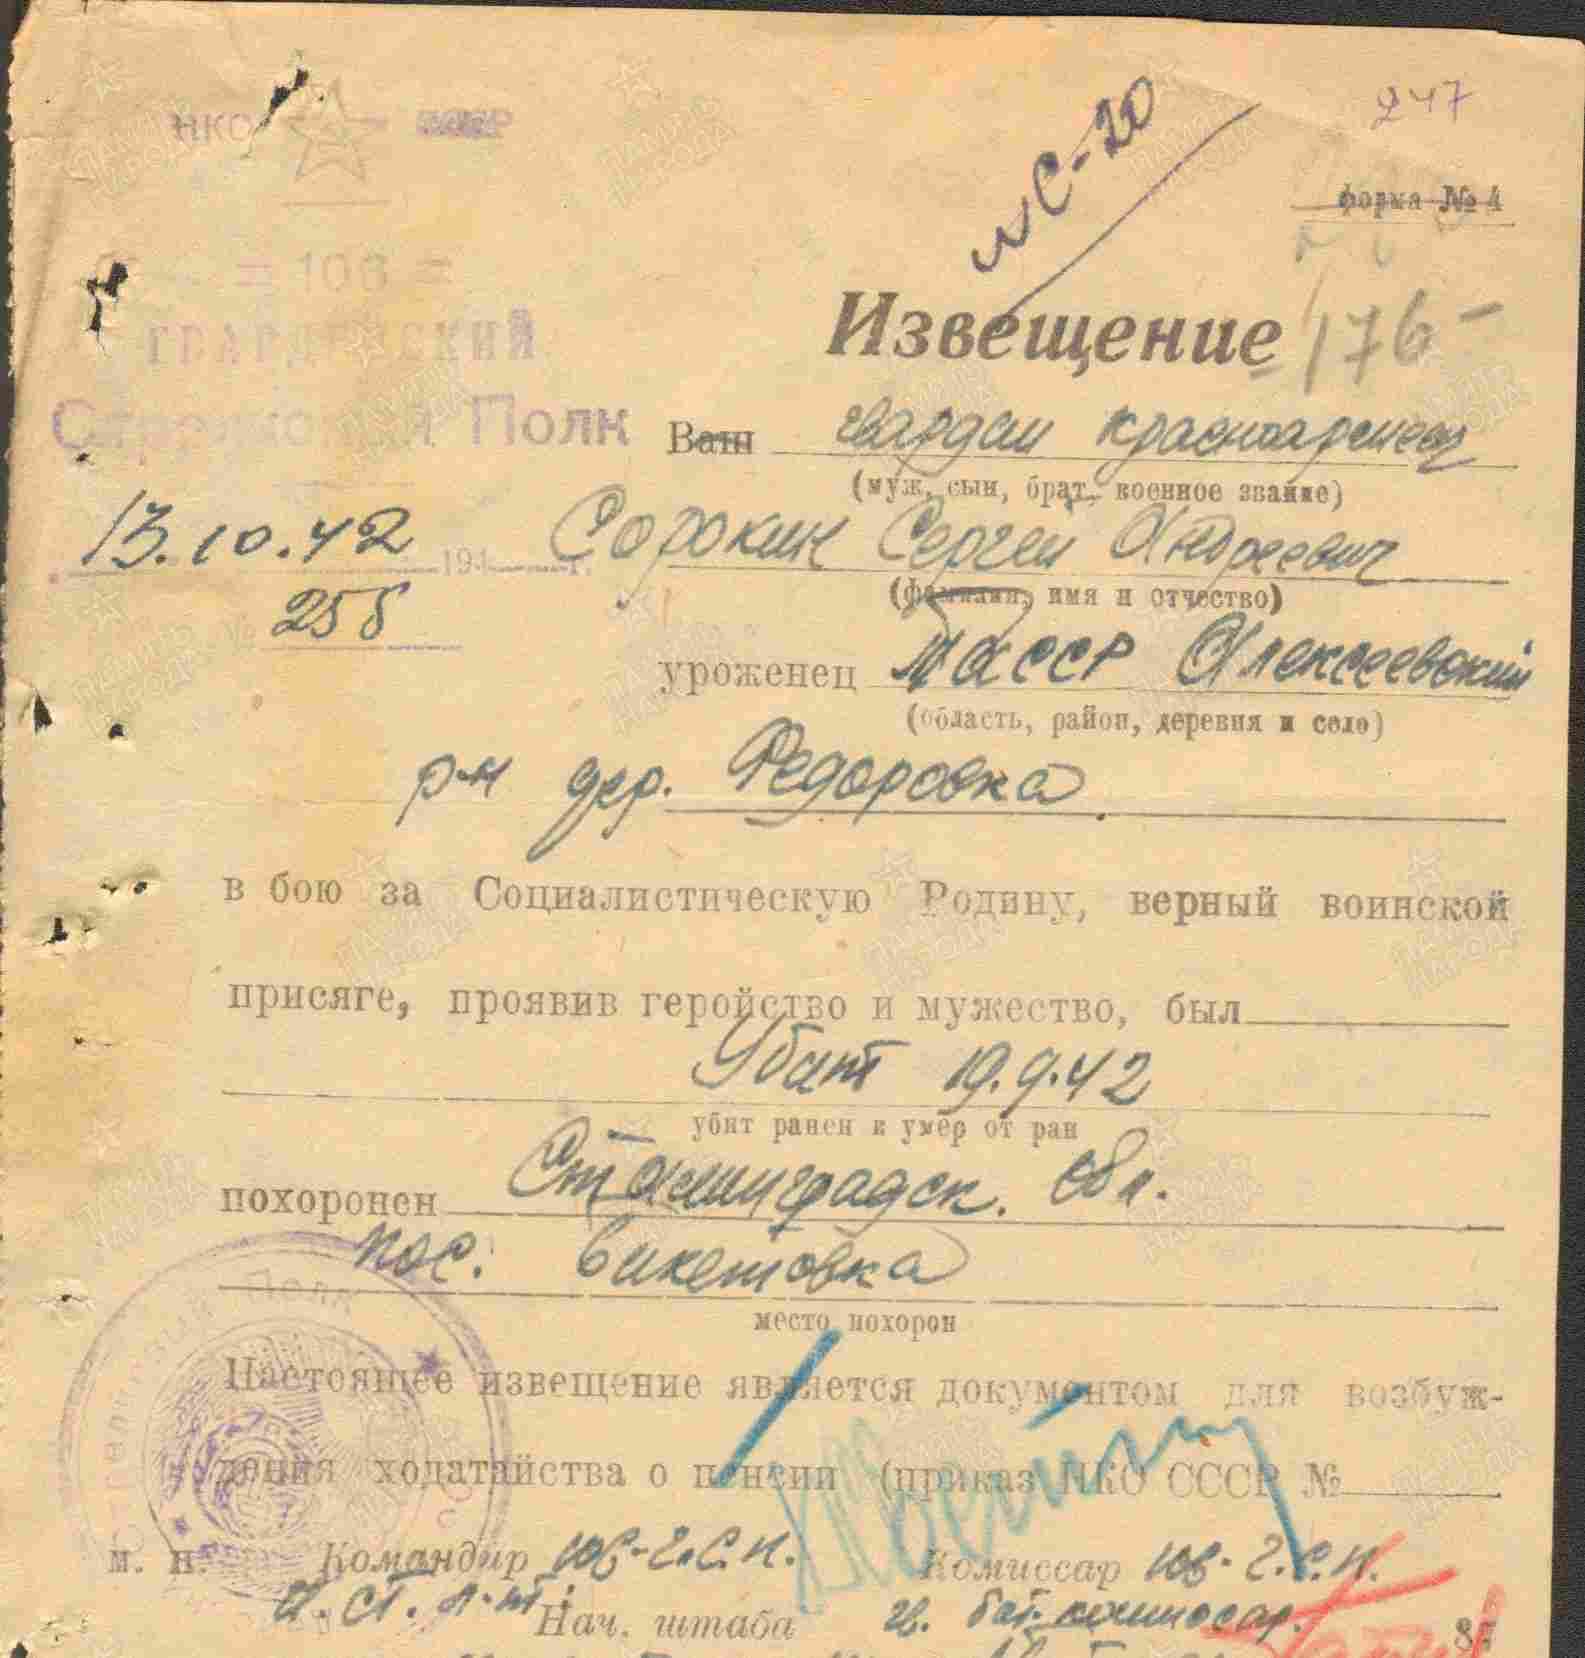 247
мС-20
НКО СССР
форма № 4
= 106 =
ГВАРДЕЙСКИЙ
Стрелковый Полк
Извещение
176-
Ваш гвардии красноармеец
(муж, сын, брат, военное звание)
13.10.42 194 г.
Сорокин Сергей Андреевич
(фамилия, имя и отчество)
№ 258
уроженец ТАССР Алексеевский
(область, район, деревня и село)
р-н дер. Федоровка
в бою за Социалистическую Родину, верный воинской
присяге, проявив геройство и мужество, был
Убит 19.9.42
убит ранен и умер от ран
похоронен Сталинградск. обл.
пос. Бикетовка
место похорон
Настоящее извещение является документом для возбуж-
дения ходатайства о пенсии (приказ НКО СССР №
м. п. Командир 106-г.с.п. Комиссар 106-г.с.п.
г. ст. л-т: Нач. штаба гв. бат. комиссар.
Стрелковый Полк
ПАМЯТЬ НАРОДА